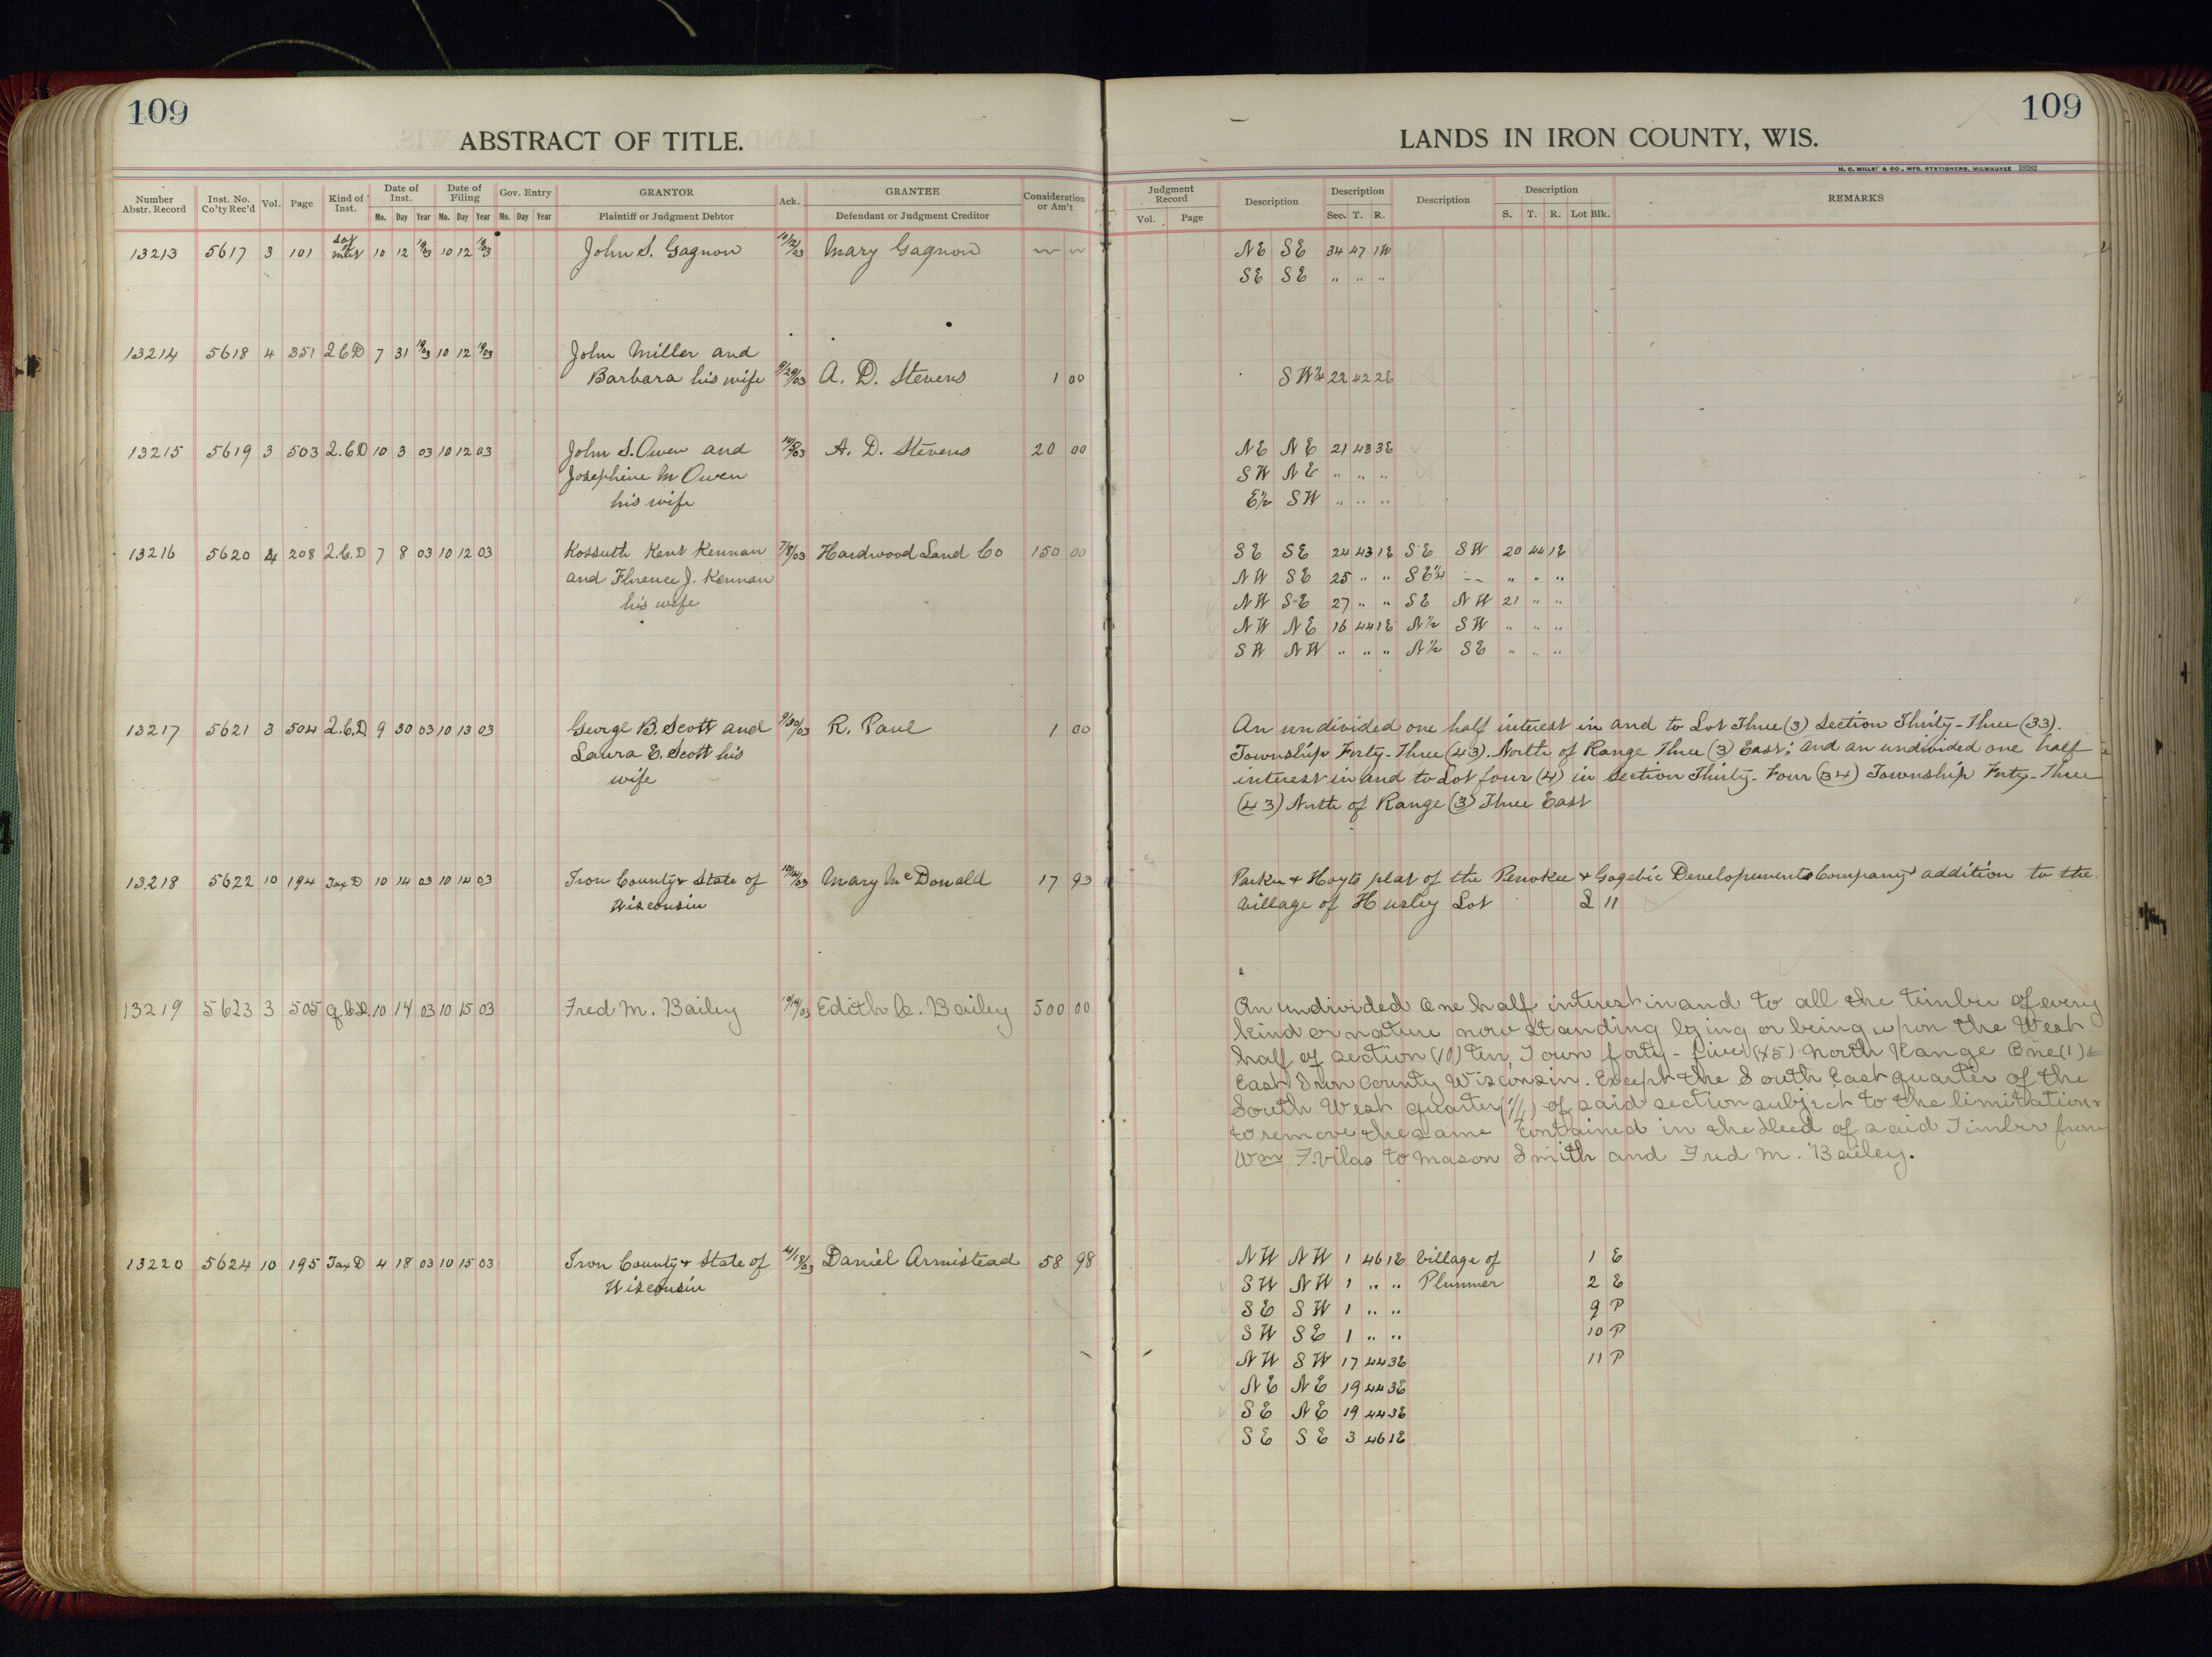 109
ABSTRACT OF TITLE.
Number Abstr. Record
Inst. No. Co'ty Rec'd
Vol.
Page
Kind of Inst.
Date of Inst.
Mo. Day Year
Date of Filing
Mo. Day Year
Gov. Entry
Mo. Day Year
GRANTOR
Plaintiff or Judgment Debtor
Ack.
GRANTEE
Defendant or Judgment Creditor
Consideration or Am't
13213 5617 3 101 10 12 1903 10 12 1903 John S. Gagnon 10/12/03 Mary Gagnon
13214 5618 4 351 2 C D 7 31 1903 10 12 1903 John Miller and
Barbara his wife 9/29/03 A. D. Stevens 1 00
13215 5619 3 503 2. C D 10 3 03 10 12 03 John S. Owen and A. D. Stevens 20 00
Josephine M Owen
his wife
13216 5620 4 208 2. C. D 7 8 03 10 12 03 Kossuth Kent Kennan 7/8/03 Hardwood Land Co 150 00
and Florence J. Kennan
his wife
13217 5621 3 504 2. C. D. 9 30 03 10 13 03 George B. Scott and 9/30/03 R. Paul 1 00
Laura E. Scott his
wife
13218 5622 10 194 Tax D 10 14 03 10 14 03 Iron County & State of 10/14/03 Mary McDonald 17 93
Wisconsin
13219 5623 3 505 10 14 03 10 15 03 Fred M. Bailey 10/14/03 Edith Bailey 500 00
13220 5624 10 195 Tax D 4 18 03 10 15 03 Iron County & State of 4/18/03 Daniel Armistead 58 98
Wisconsin
109
LANDS IN IRON COUNTY, WIS.
H. C. MILLER CO., MFG. STATIONERS, MILWAUKEE 19282
Judgment Record
Vol. Page
Description
Description
Sec. T. R.
Description
Description
S. T. R. Lot Blk.
REMARKS
NE SE 34 47 1W
SE SE " " "
SW¼ 22 42 2E
NE NE 21 43 3E
SW NE " " "
E½ SW " " "
SE SE 24 43 1E SE SW 20 44 1E
NW SE 25 " " SE¼ -- " " "
NW SE 27 " " SE NW 21 " "
NW NE 16 44 1E N½ SW " " "
SW NW " " " N½ SE " " "
An undivided one half interest in and to Lot Three (3) Section Thirty-Three (33).
Township Forty-Three (43). North of Range Three (3) East; and an undivided one half
interest in and to Lot four (4) in Section Thirty-Four (34) Township Forty-Three
(43) North of Range (3) Three East
Parker & Hoyts plat of the Penokee & Gogebic Developement Company's addition to the
Village of Hurley Lot L 11
An undivided One half interest in and to all the timber of every
kind or nature now standing lying or being upon the West
half of section (10) ten Town forty-five (45) North Range One (1)
East Iron County Wisconsin. Except the South East quarter of the
South West quarter (¼) of said section subject to the limitations
to remove the same contained in the Deed of said Timber from
Wm F. Vilas to Mason Smith and Fred M. Bailey.
NW NW 1 46 1E Village of 1 E
SW NW 1 " " Plummer 2 E
SE SW 1 " " 9 P
SW SE 1 " " 10 P
NW SW 17 44 3E 11 P
NE NE 19 44 3E
SE NE 19 44 3E
SE SE 3 46 1E